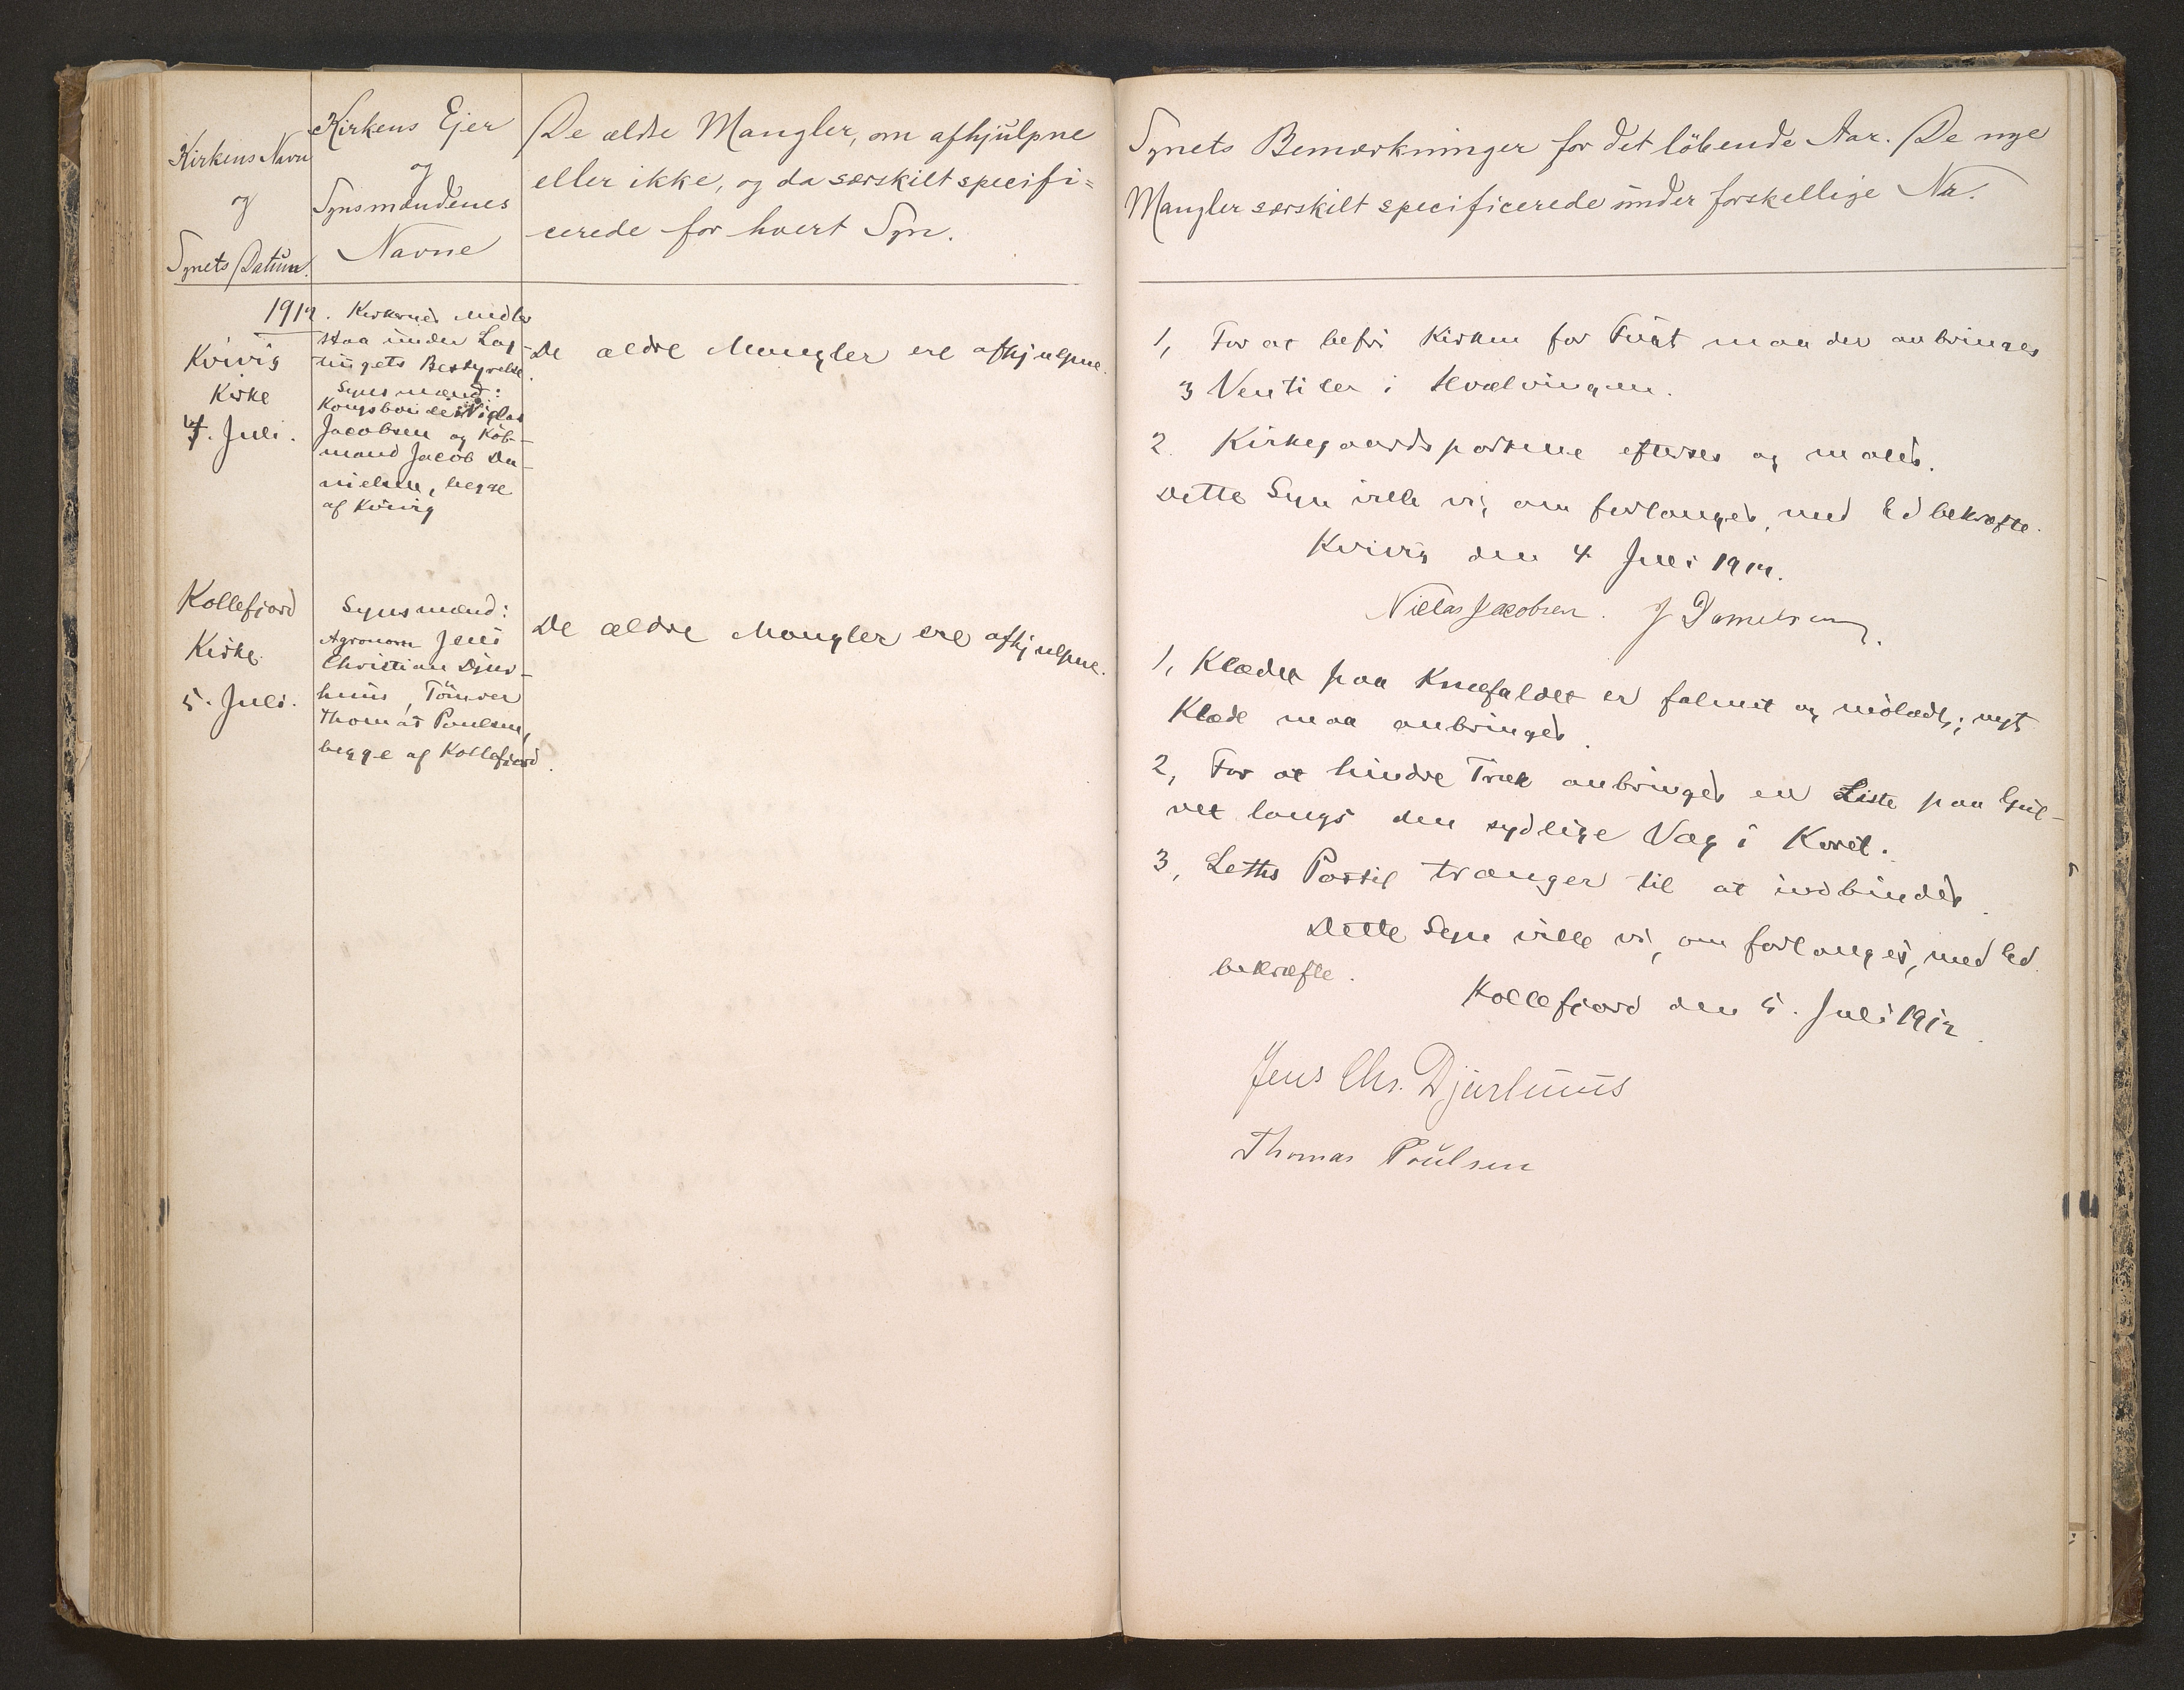 Kirkens Navn
og
Synets Datum.
Kirkens Ejer
og
Synsmændenes
Navne
De ældre Mangler, om afhjulpne
eller ikke, og da særskilt specifi=
cerede for hvert Syn.
Synets Bemærkninger for det löbende Aar. De nye
Mangler særskilt specificerede under forskellige Nr.
1912.
Kvivig
Kirke
4. Juli.
Kirkernes Midler
staa under Lag-
tingets Bestyrelse.
Synsmænd:
Kongsbonde Niclas
Jacobsen og Köb-
mand Jacob Da-
nielsen, begge
af Kvivig
De ældre Mangler ere afhjulpne.
1, For at befri Kirken for Fugt maa der anbringes
3 Ventiler i Hvælvingen.
2. Kirkegaardsportene efterses og males.
Dette Syn ville vi, om forlanges, med Ed bekræfte.
Kvivig den 4 Juli 1912.
Niclas Jacobsen. J Danielsen.
Kollefjord
Kirke.
5. Juli.
Synsmænd:
Agronom Jens
Christian Djur-
huus, Tömrer
Thomas Poulsen,
begge af Kollefjord.
De ældre Mangler ere afhjulpne.
1, Klædet paa Knæfaldet er falmet og mölædt; nyt
Klæde maa anbringes.
2, For at hindre Træk anbringes en Liste paa Gul-
vet langs den sydlige Væg i Koret.
3, Leths Postil trænger til at indbindes.
Dette Syn ville vi, om forlanges, med Ed
bekræfte.
Kollefjord den 5. Juli 1912.
Jens Chr. Djurhuus
Thomas Poulsen